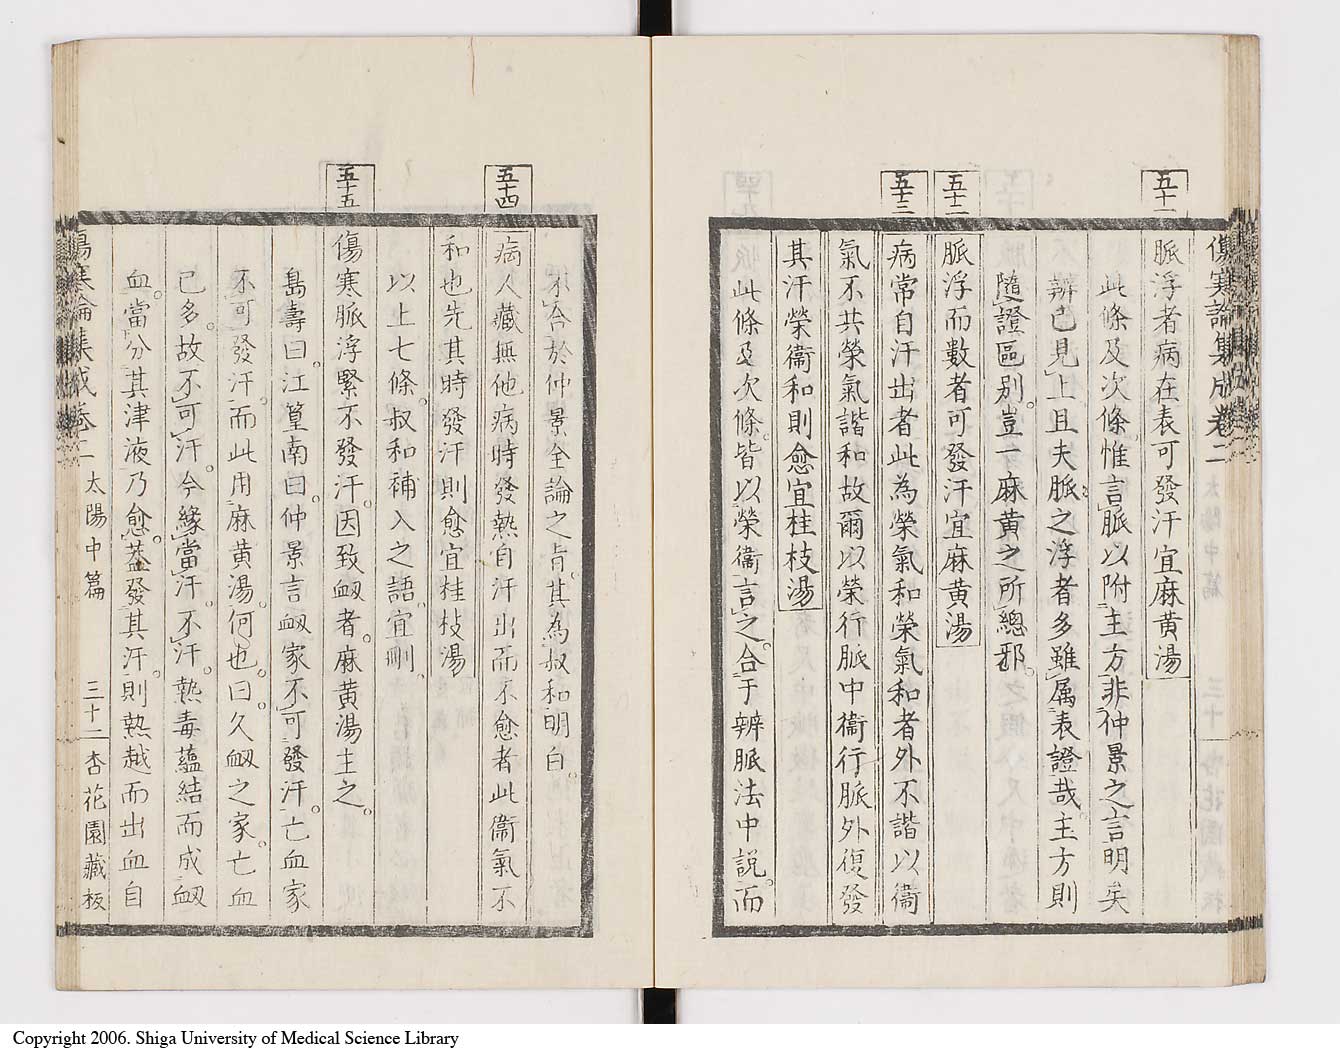 傷寒論集成卷二
五十一
脈浮者病在表可發汗宜麻黄湯
此條及次條。惟言脈以附主方。非仲景之言明矣
辨已見上且夫脈之浮者多雖属表證哉。主方則
隨證區別。豈一麻黄之所總邪。
五十二
脈浮而數者可發汗宜麻黄湯
五十三
病常自汗出者此為榮氣和榮氣和者外不諧以衞
氣不共榮氣諧和故爾以榮行脈中衞行脈外復發
其汗榮衞和則愈宜桂枝湯
此條及次條。皆以榮衞言之。合于辨脈法中説。而
不合於仲景全論之旨。其為叔和明白。
五十四
病人藏無他病時發熱自汗出而不愈者此衞氣不
和也先其時發汗則愈宜桂枝湯
以上七條。叔和補入之語。宜刪
五十五
傷寒脈浮緊不發汗。因致衂者。麻黄湯主之。
島壽曰。江篁南曰。仲景言衂家不可發汗。亡血家
不可發汗。而此用麻黄湯何也。曰。久衂之家。亡血
已多。故不可汗。今緣當汗。不汗。熱毒蘊結而成衂
血。當分其津液乃愈。葢發其汗。則熱越而出血自
傷寒論集成卷二 太陽中篇 三十二 杏花園藏板
Copyright 2006. Shiga University of Medical Science Library